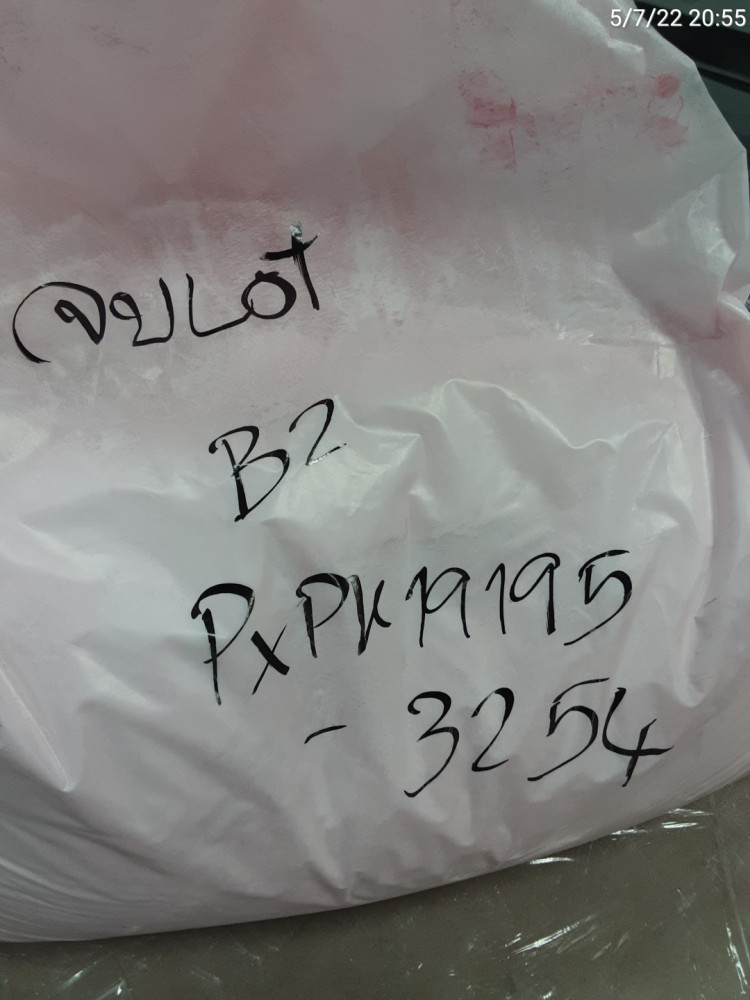 5/7/22 20:55
จบLOT
B2
PxPK19195
- 3254